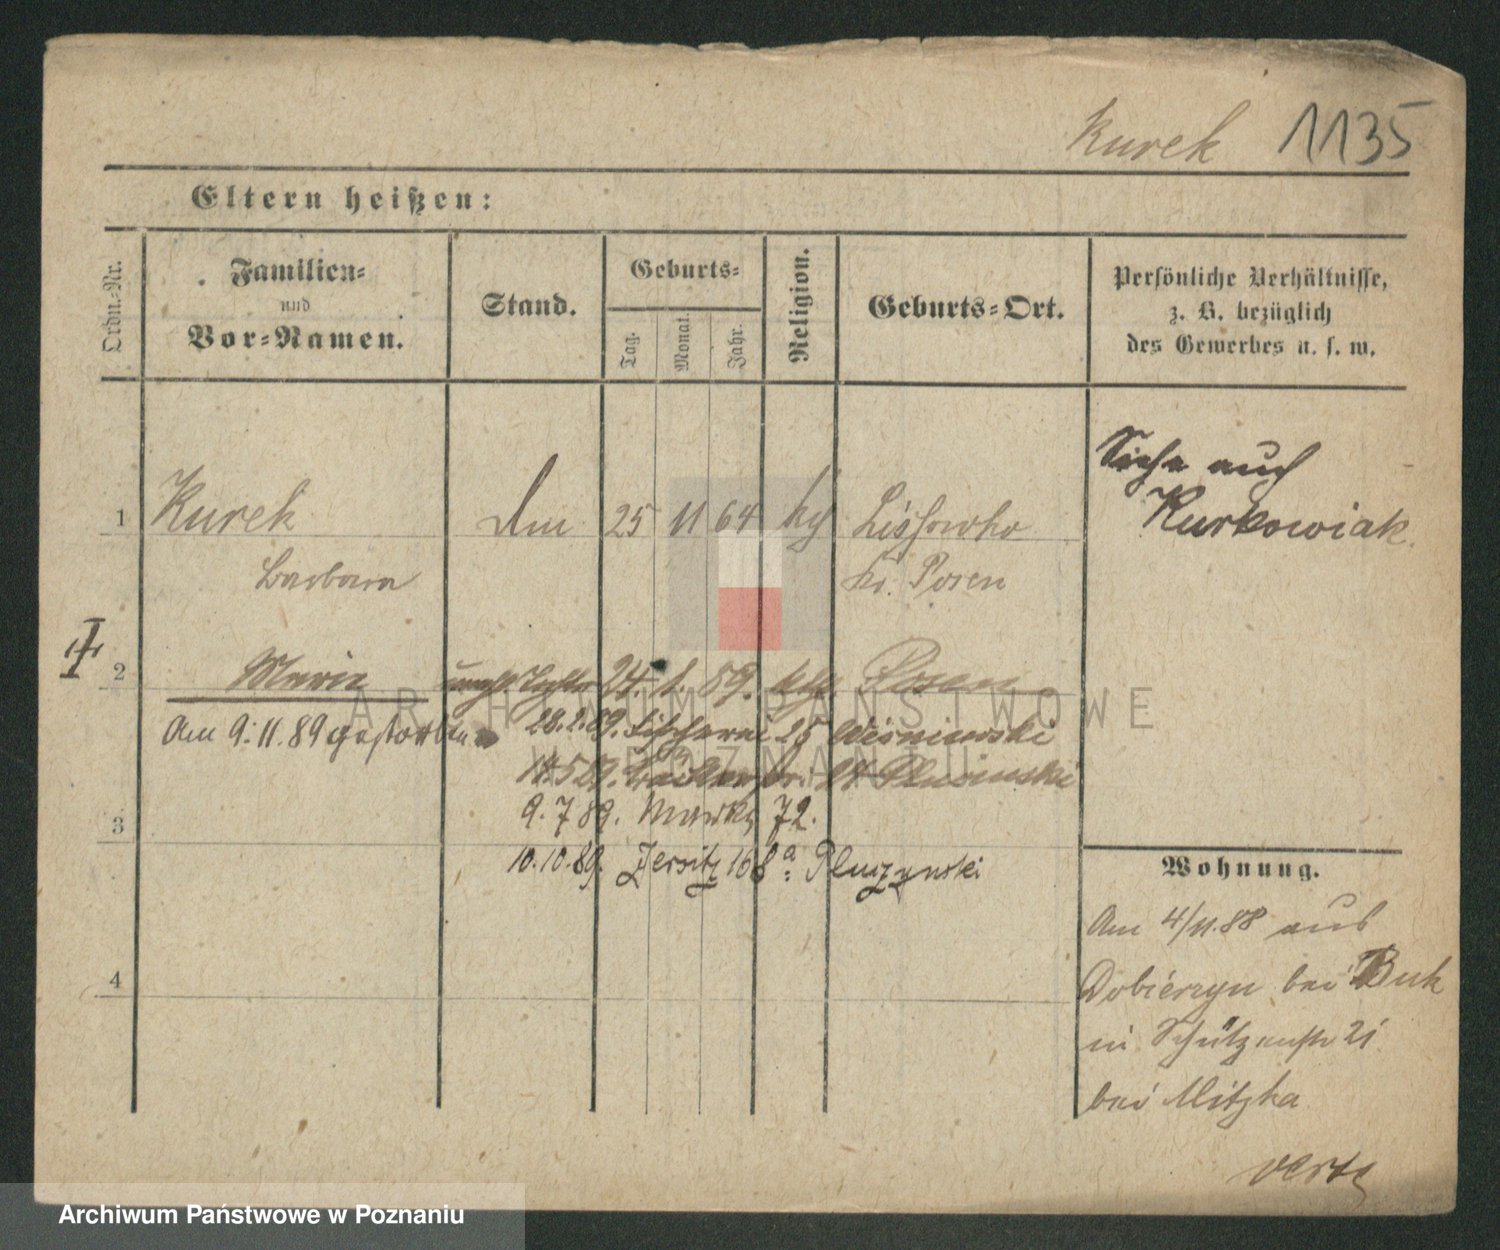 Kurek 1135
Eltern heißen:
Ordn.-Nr.
Familien-
und
Vor-Namen.
Stand.
Geburts-
Tag.
Monat.
Jahr.
Religion.
Geburts-Ort.
Persönliche Verhältnisse,
z. B. bezüglich
des Gewerbes u. s. w.
Siehe auch
Kurkowiak.
1 Kurek 25 11 64
Barbara Kr. Posen
2 Marie 24. 1. 89. Posen
Am 9.11.89 gestorben
28.2.89. Fischerei 25 Wisniewski
14.5 89.
3 9.7 89. Markt 72.
10.10.89. Jersitz 168a: Pluczynski
4
Wohnung.
Am 4/11.88 aus
Dobieczyn bei Buk
in Schützenstr 21
bei Mitzka
verte
ARCHIWUM PAŃSTWOWE
W POZNANIU
Archiwum Państwowe w Poznaniu